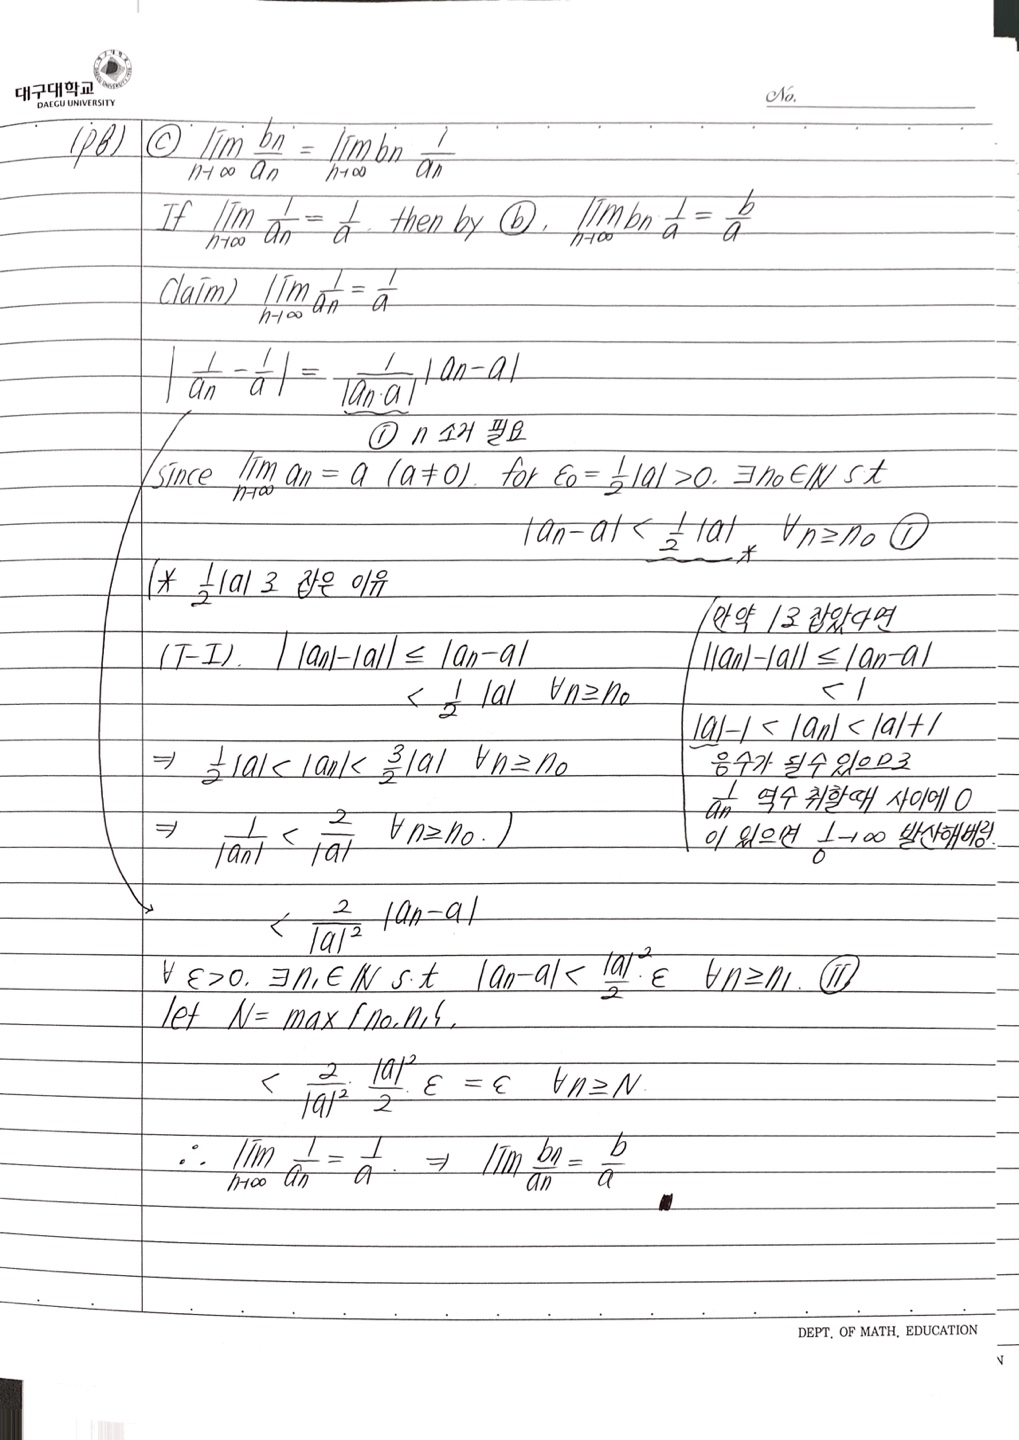 대구대학교
DAEGU UNIVERSITY
No.
(pf) ⓒ lim_{n→∞} bn/an = lim_{n→∞} bn 1/an
If lim_{n→∞} 1/an = 1/a. then by ⓑ. lim_{n→∞} bn 1/a = b/a
Claim) lim_{n→∞} 1/an = 1/a
|1/an - 1/a| = 1/|an·a| |an-a|
① n 소거 필요
Since lim_{n→∞} an = a (a≠0). for ε0 = 1/2|a| > 0. ∃n0∈ℕ s.t
|an-a| < 1/2|a| * ∀n≥n0 ①
(* 1/2|a|로 잡은 이유
(T-I). ||an|-|a|| ≤ |an-a|
< 1/2|a| ∀n≥n0
⇒ 1/2|a| < |an| < 3/2|a| ∀n≥n0
⇒ 1/|an| < 2/|a| ∀n≥n0.)
만약 1로 잡았다면
||an|-|a|| ≤ |an-a|
< 1
|a|-1 < |an| < |a|+1
음수가 될수 있으므로
1/an 역수 취할때 사이에 0
이 있으면 1/0→∞ 발산해버림.
< 2/|a|² |an-a|
∀ε>0. ∃n1∈ℕ s.t |an-a| < |a|²/2 ε ∀n≥n1. Ⅱ
let N = max{n0, n1}.
< 2/|a|² · |a|²/2 · ε = ε ∀n≥N.
∴ lim_{n→∞} 1/an = 1/a. ⇒ lim bn/an = b/a
DEPT. OF MATH. EDUCATION